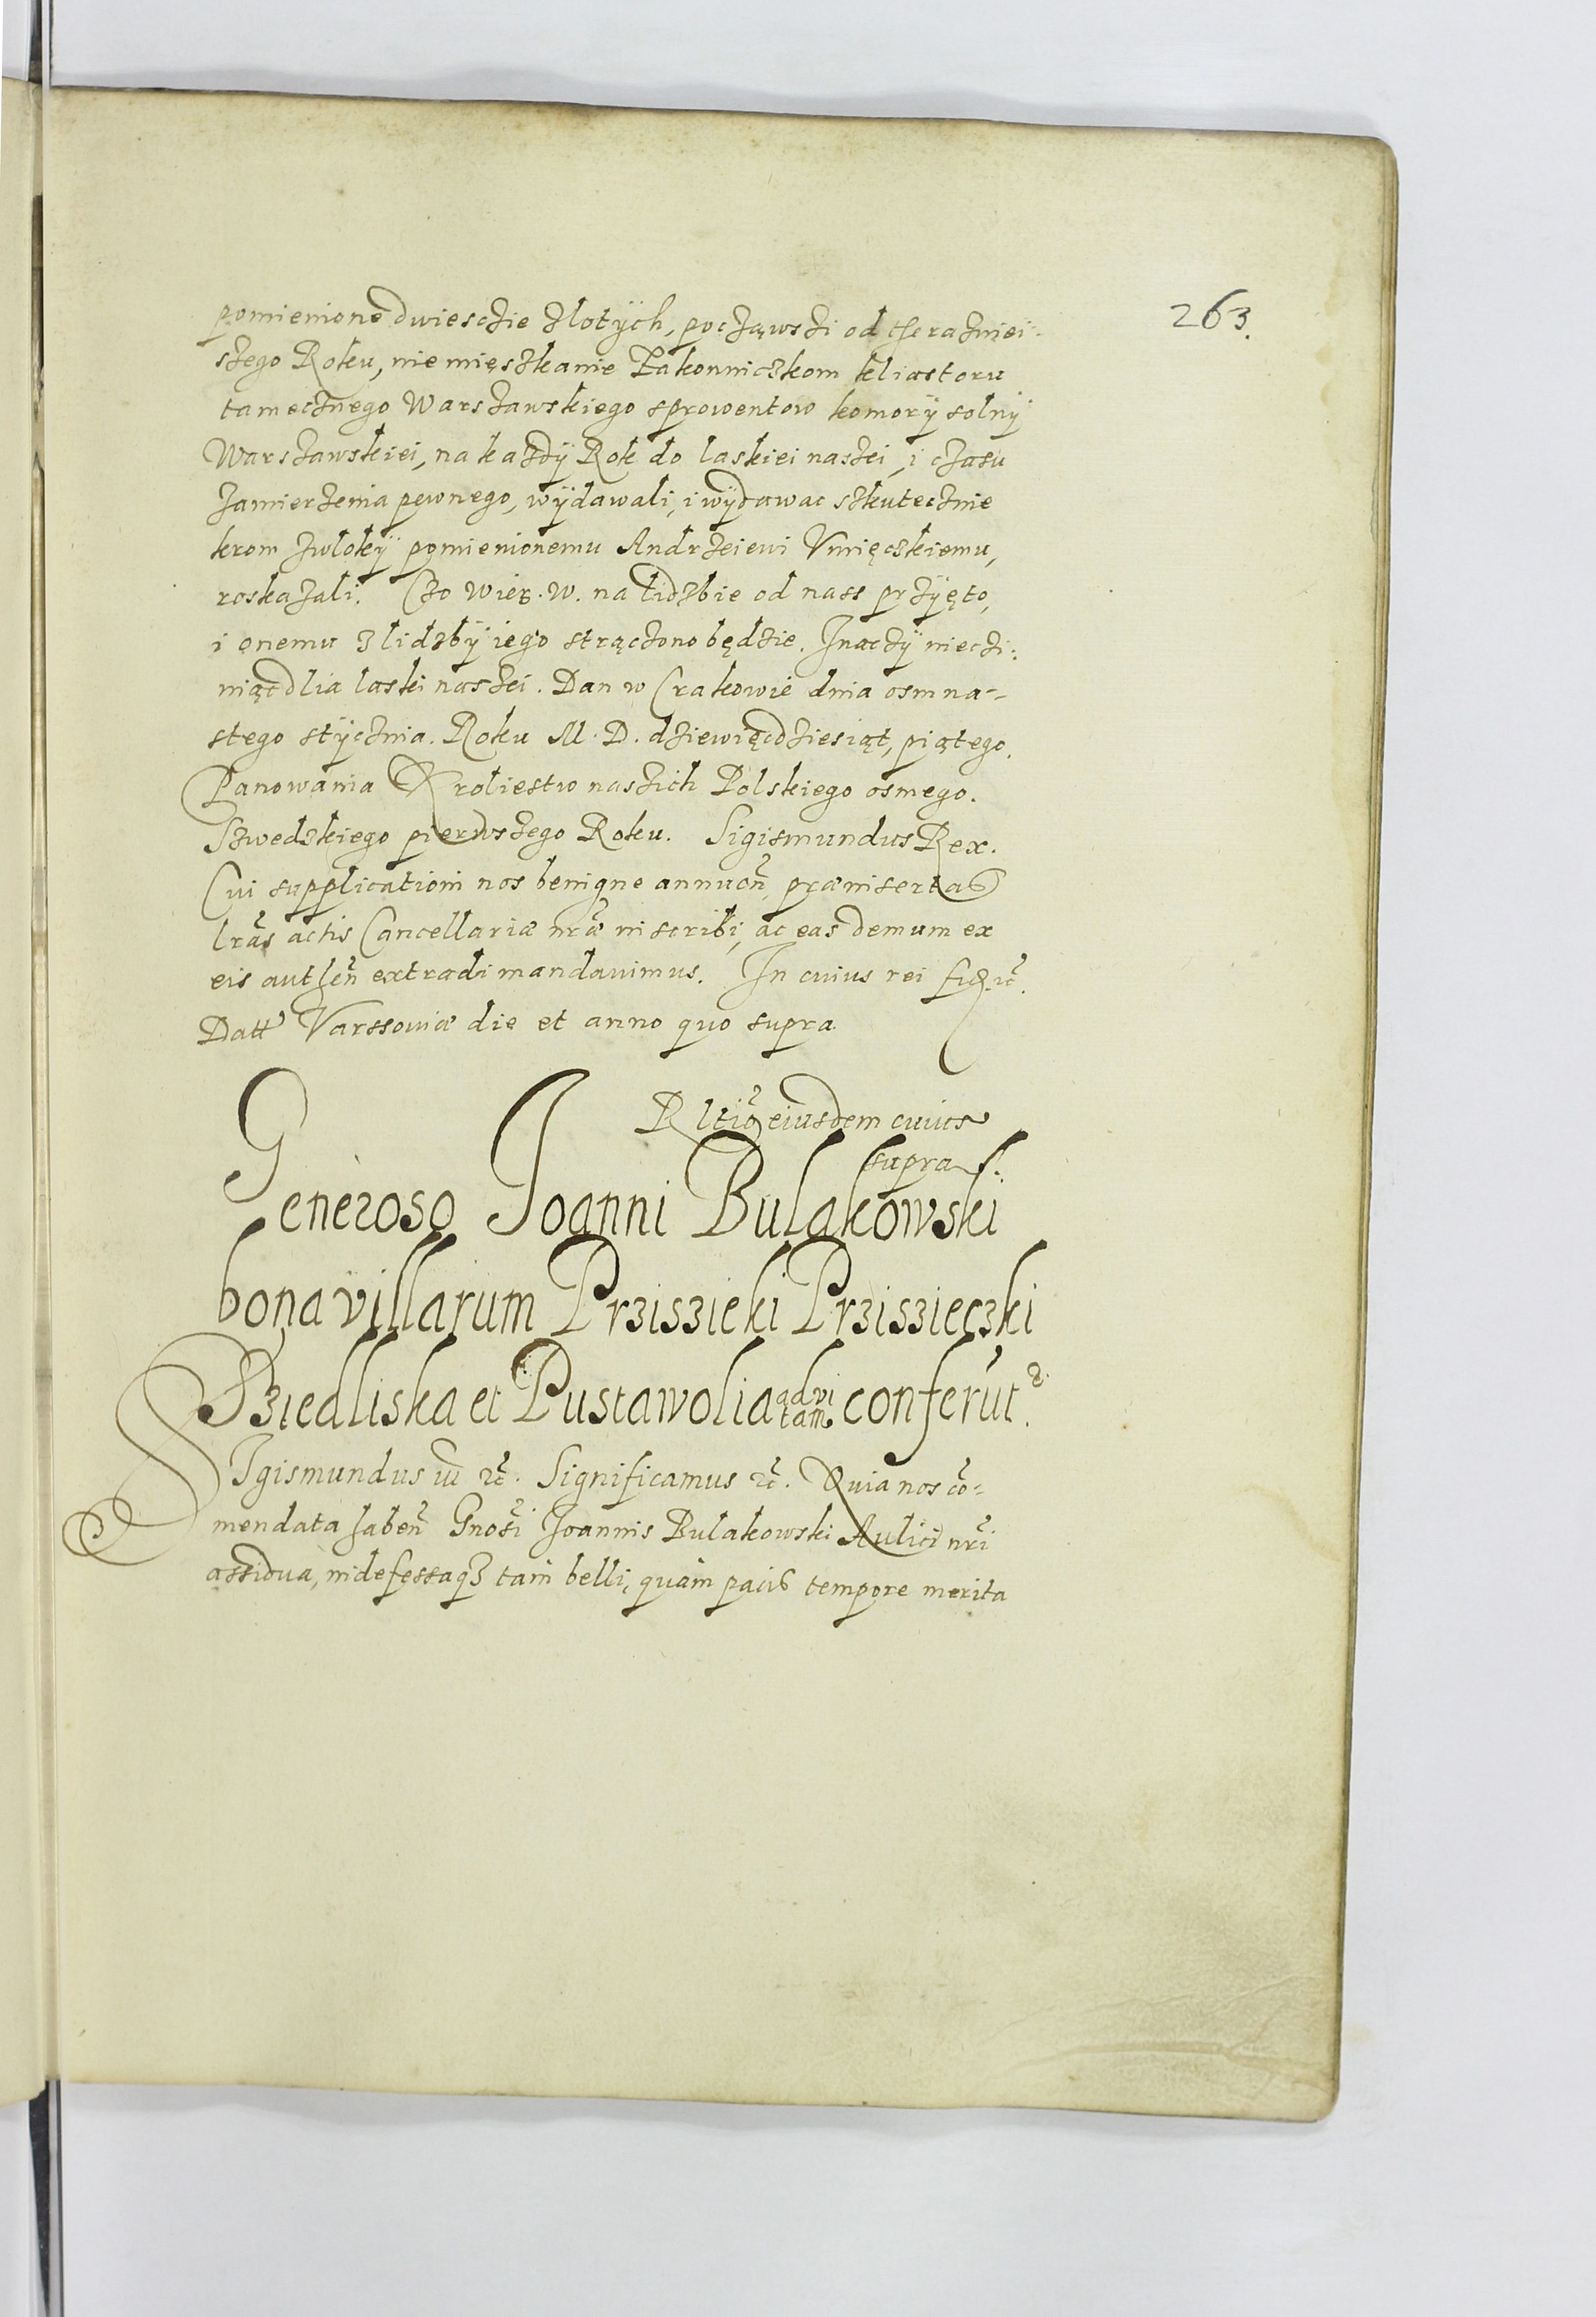 263.
pomienione dwiesczie zlotÿch, poczqwszi od therazniei-
szego Roku, nie mięszkanie Zakonniczkom kliastoru
tamecznego Warszawskiego sprowentow komorÿ solnÿ
Warszawskiei, na kazdÿ Rok do laskiei naszei, i czasu
zamierzenia pewnego, wÿdawali, i wÿdawac szkutecznie
krom zwlokÿ pomienionemu Andrzeiewi Vmięczkiemu,
roskazali. Czo Wier. W. na lidzbie od nass przÿęto,
i onemu z lidzbÿ iego strączono będzie. Inaczÿ nieczi-
niąc dlia laski naszei. Dan w Crakowie dnia osmna-
stego stÿcznia. Roku M. D. dziewięcdziesiąt, piątego.
Panowania Kroliestw naszich Polskiego osmego.
Szwedzkiego pierwszego Roku. Sigismundus Rex.
Cui supplicationi nos benigne annuen̄ præinsertas
lr̄as actis Cancellariæ nr̄æ inscribi, ac eas demum ex
eis authen̄ extradi mandavimus. In cuius rei fid. &c̄.
Datt Varssoviæ die et anno quo supra
Rltio eiusdem cuius
supra s.
Generoso Joanni Bulakowski
bona villarum Przisieki Przisieczki
Sziedliska et Pustawolia ad vi
tam conferūt.
SIgismundus iii &c̄. Significamus &c̄. Quia nos cō-
mendata haben̄ Gnosī Joannis Bulakowski Aulici nr̄i
assidua, indefessaq3 tam belli, quam pacis tempore merita